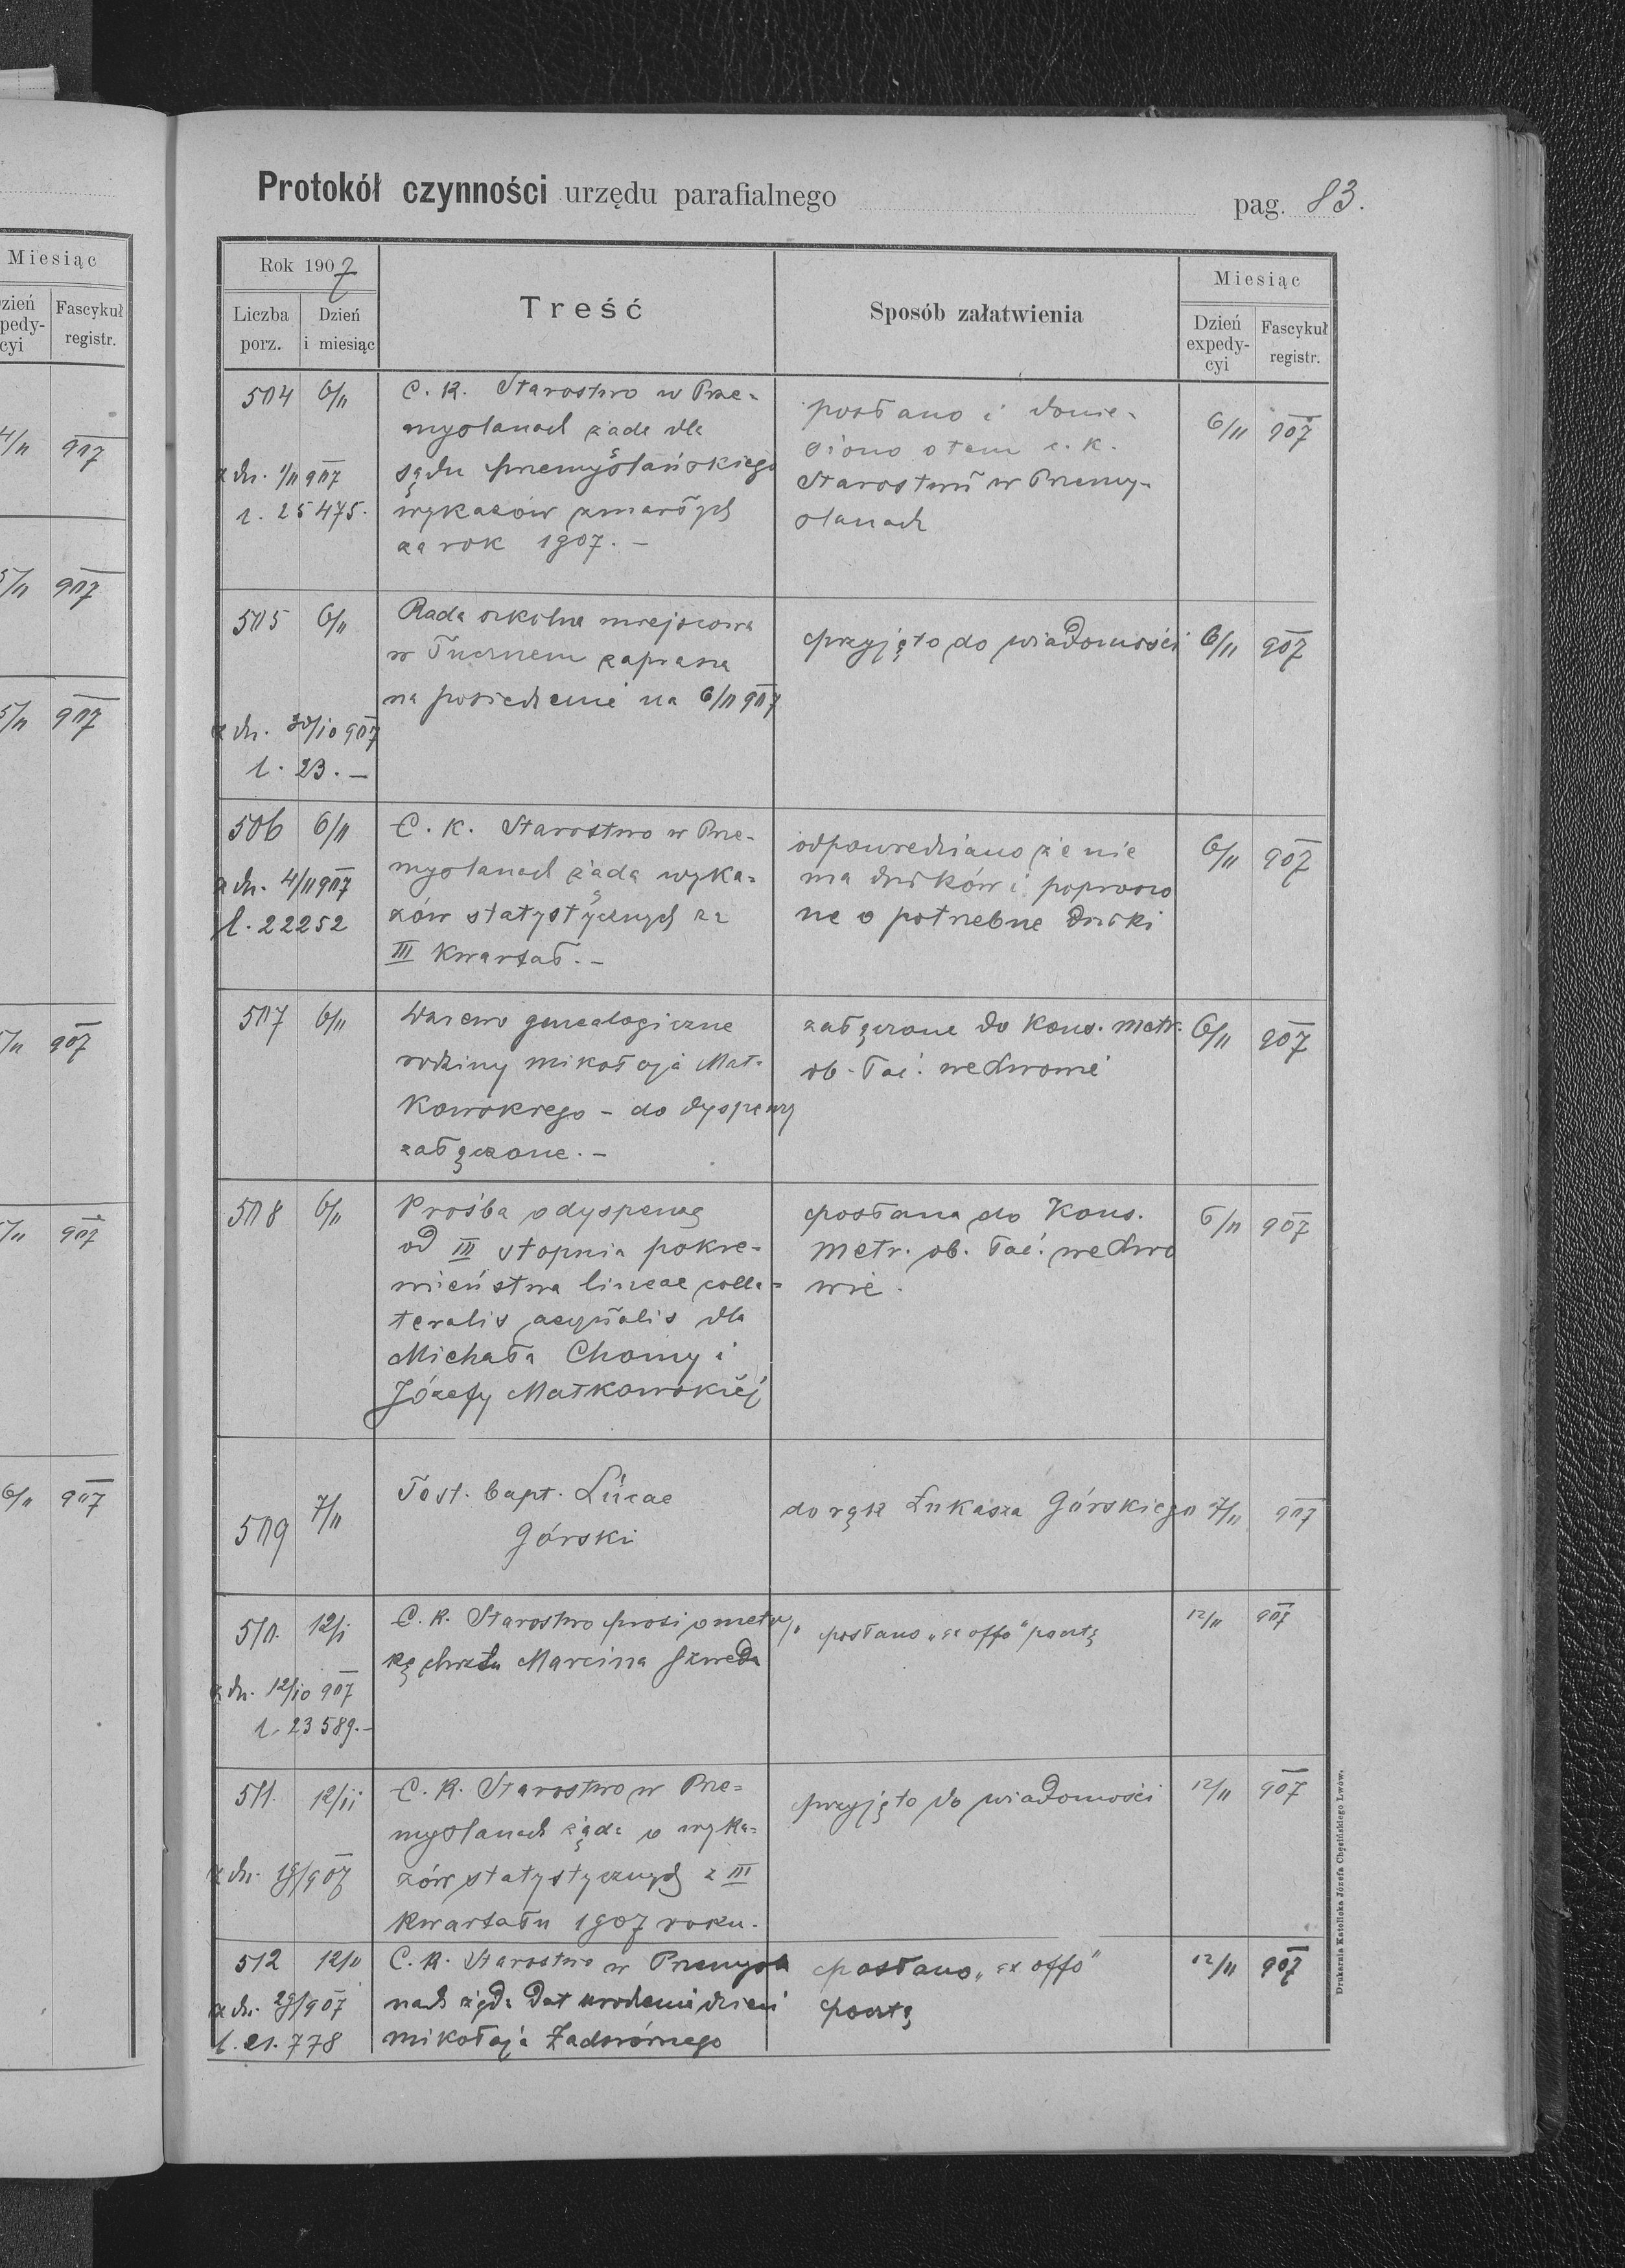 Protokół czynności urzędu parafialnego
pag. 83.
Miesiąc
Dzień expedy-cyi
Fascykuł registr.
4/11 907
5/11 907
5/11 907
907
907
6/11 907
Rok 1907
Liczba porz.
Dzień i miesiąc
Treść
Sposób załatwienia
Miesiąc
Dzień expedy-cyi
Fascykuł registr.
504 6/11
z dn. 1/11 907
l. 25475.
C. K. Starostwo w Prze-
myslanach żąda dla
sądu przemyślańskiego
wykazów zmarłych
za rok 1907. –
posłano i donie-
siono o tem c. k.
Starostwu w Przemy-
slanach
6/11 907
505 6/11
z dn. 30/10 907
l. 23. –
Rada szkolna miejscowa
w Tucznem zaprasza
na posiedzenie na 6/11 907
przyjęto do wiadomości
6/11 907
506 6/11
z dn. 4/11 907
l. 22252
C. K. Starostwo w Prze-
myslanach żąda wyka-
zów statystycznych za
III kwartał. –
odpowiedziano że nie
ma druków i poproszo
no o potrzebne druki
6/11 907
507 6/11
Drzewo genealogiczne
rodziny Mikołaja Mał-
kowskiego – do dyspensy
załączone. –
załączone do Kons. metr.
ob. łać. we Lwowie
6/11 907
508 6/11
Prośba o dyspensę
od III stopnia pokre-
wieństwa lineae colla-
teralis aequalis dla
Michała Chomy i
Józefy Małkowskiej
posłana do Kons.
metr. ob. łać. we Lwo
wie.
6/11 907
509 7/11
Test. bapt. Lucae
Górski
do rąk Łukasza Górskiego
7/11 907
510. 12/
z dn. 12/10 907
l. 23589. –
C. K. Starostwo prosi o metry
kę chrztu Marcina Szweda
posłano „ex offo" pocztą
12/11 907
511. 12/11
z dn. 907
C. K. Starostwo w Prze-
myslanach żąda o wyka-
zów statystycznych z III
kwartału 1907 roku.
przyjęto do wiadomości
12/11 907
512 12/11
z dn. 907
l. 21.778
C. K. Starostwo w Przemysla
nach żąda dat urodzenia dzieci
Mikołaja Zadwórnego
posłano „ex offo"
pocztą
12/11 907
Drukarnia Katolicka Józefa Chęcińskiego Lwów.